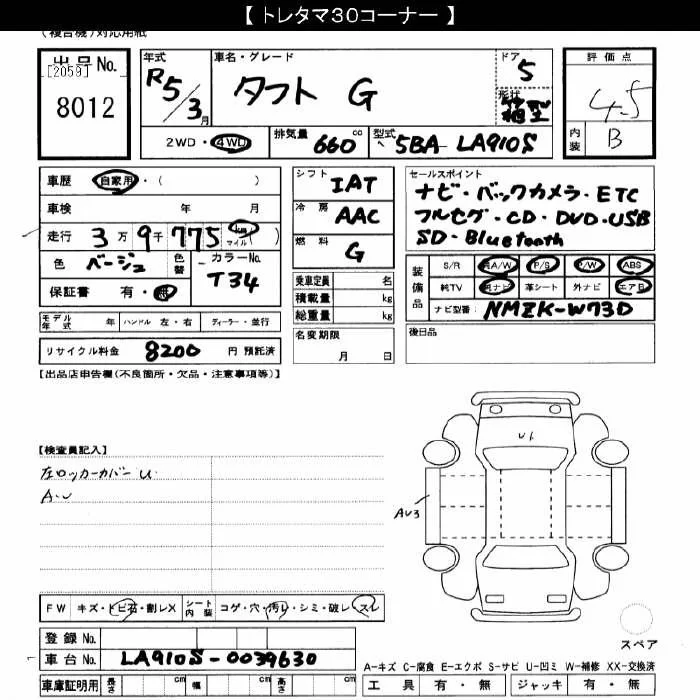 【 トレタマ30コーナー 】
(複合機)対応用紙
出品No.
[2059]
8012
年式
R5/3月
車名・グレード
タフト G
ドア
5
形状
箱型
2WD・4WD
排気量 660 cc
型式 5BA- LA910S
評価点
4.5
内装 B
車歴 自家用・( )
車検 年 月
走行 3万9千775 km マイル ( )
色 ベージュ
色替
カラーNo.
T34
保証書 有・無
シフト IAT
冷房 AAC
燃料 G
乗車定員 名
積載量 kg
総重量 kg
セールスポイント
ナビ・バックカメラ・ETC
フルセグ・CD・DVD・USB
SD・Bluetooth
装備品
S/R 純A/W P/S P/W ABS
純TV 純ナビ 革シート 外ナビ エアB
ナビ型番: NMZK-W73D
モデル年式 年 ハンドル 左・右 ディーラー・並行
名変期限
月 日
後日品
リサイクル料金 8200 円 預託済
【出品店申告欄(不良箇所・欠品・注意事項等)】
【検査員記入】
左ロッカーカバー U
A.U
U1
AU3
FW キズ・トビ石・割レX
シート内装 コゲ・穴・汚レ・シミ・破レ・スレ
登録 No.
車台 No. LA910S-0039630
車庫証明用 長さ cm 幅 cm 高さ cm
スペア
A-キズ C-腐食 E-エクボ S-サビ U-凹ミ W-補修 XX-交換済
工具 有・無 ジャッキ 有・無